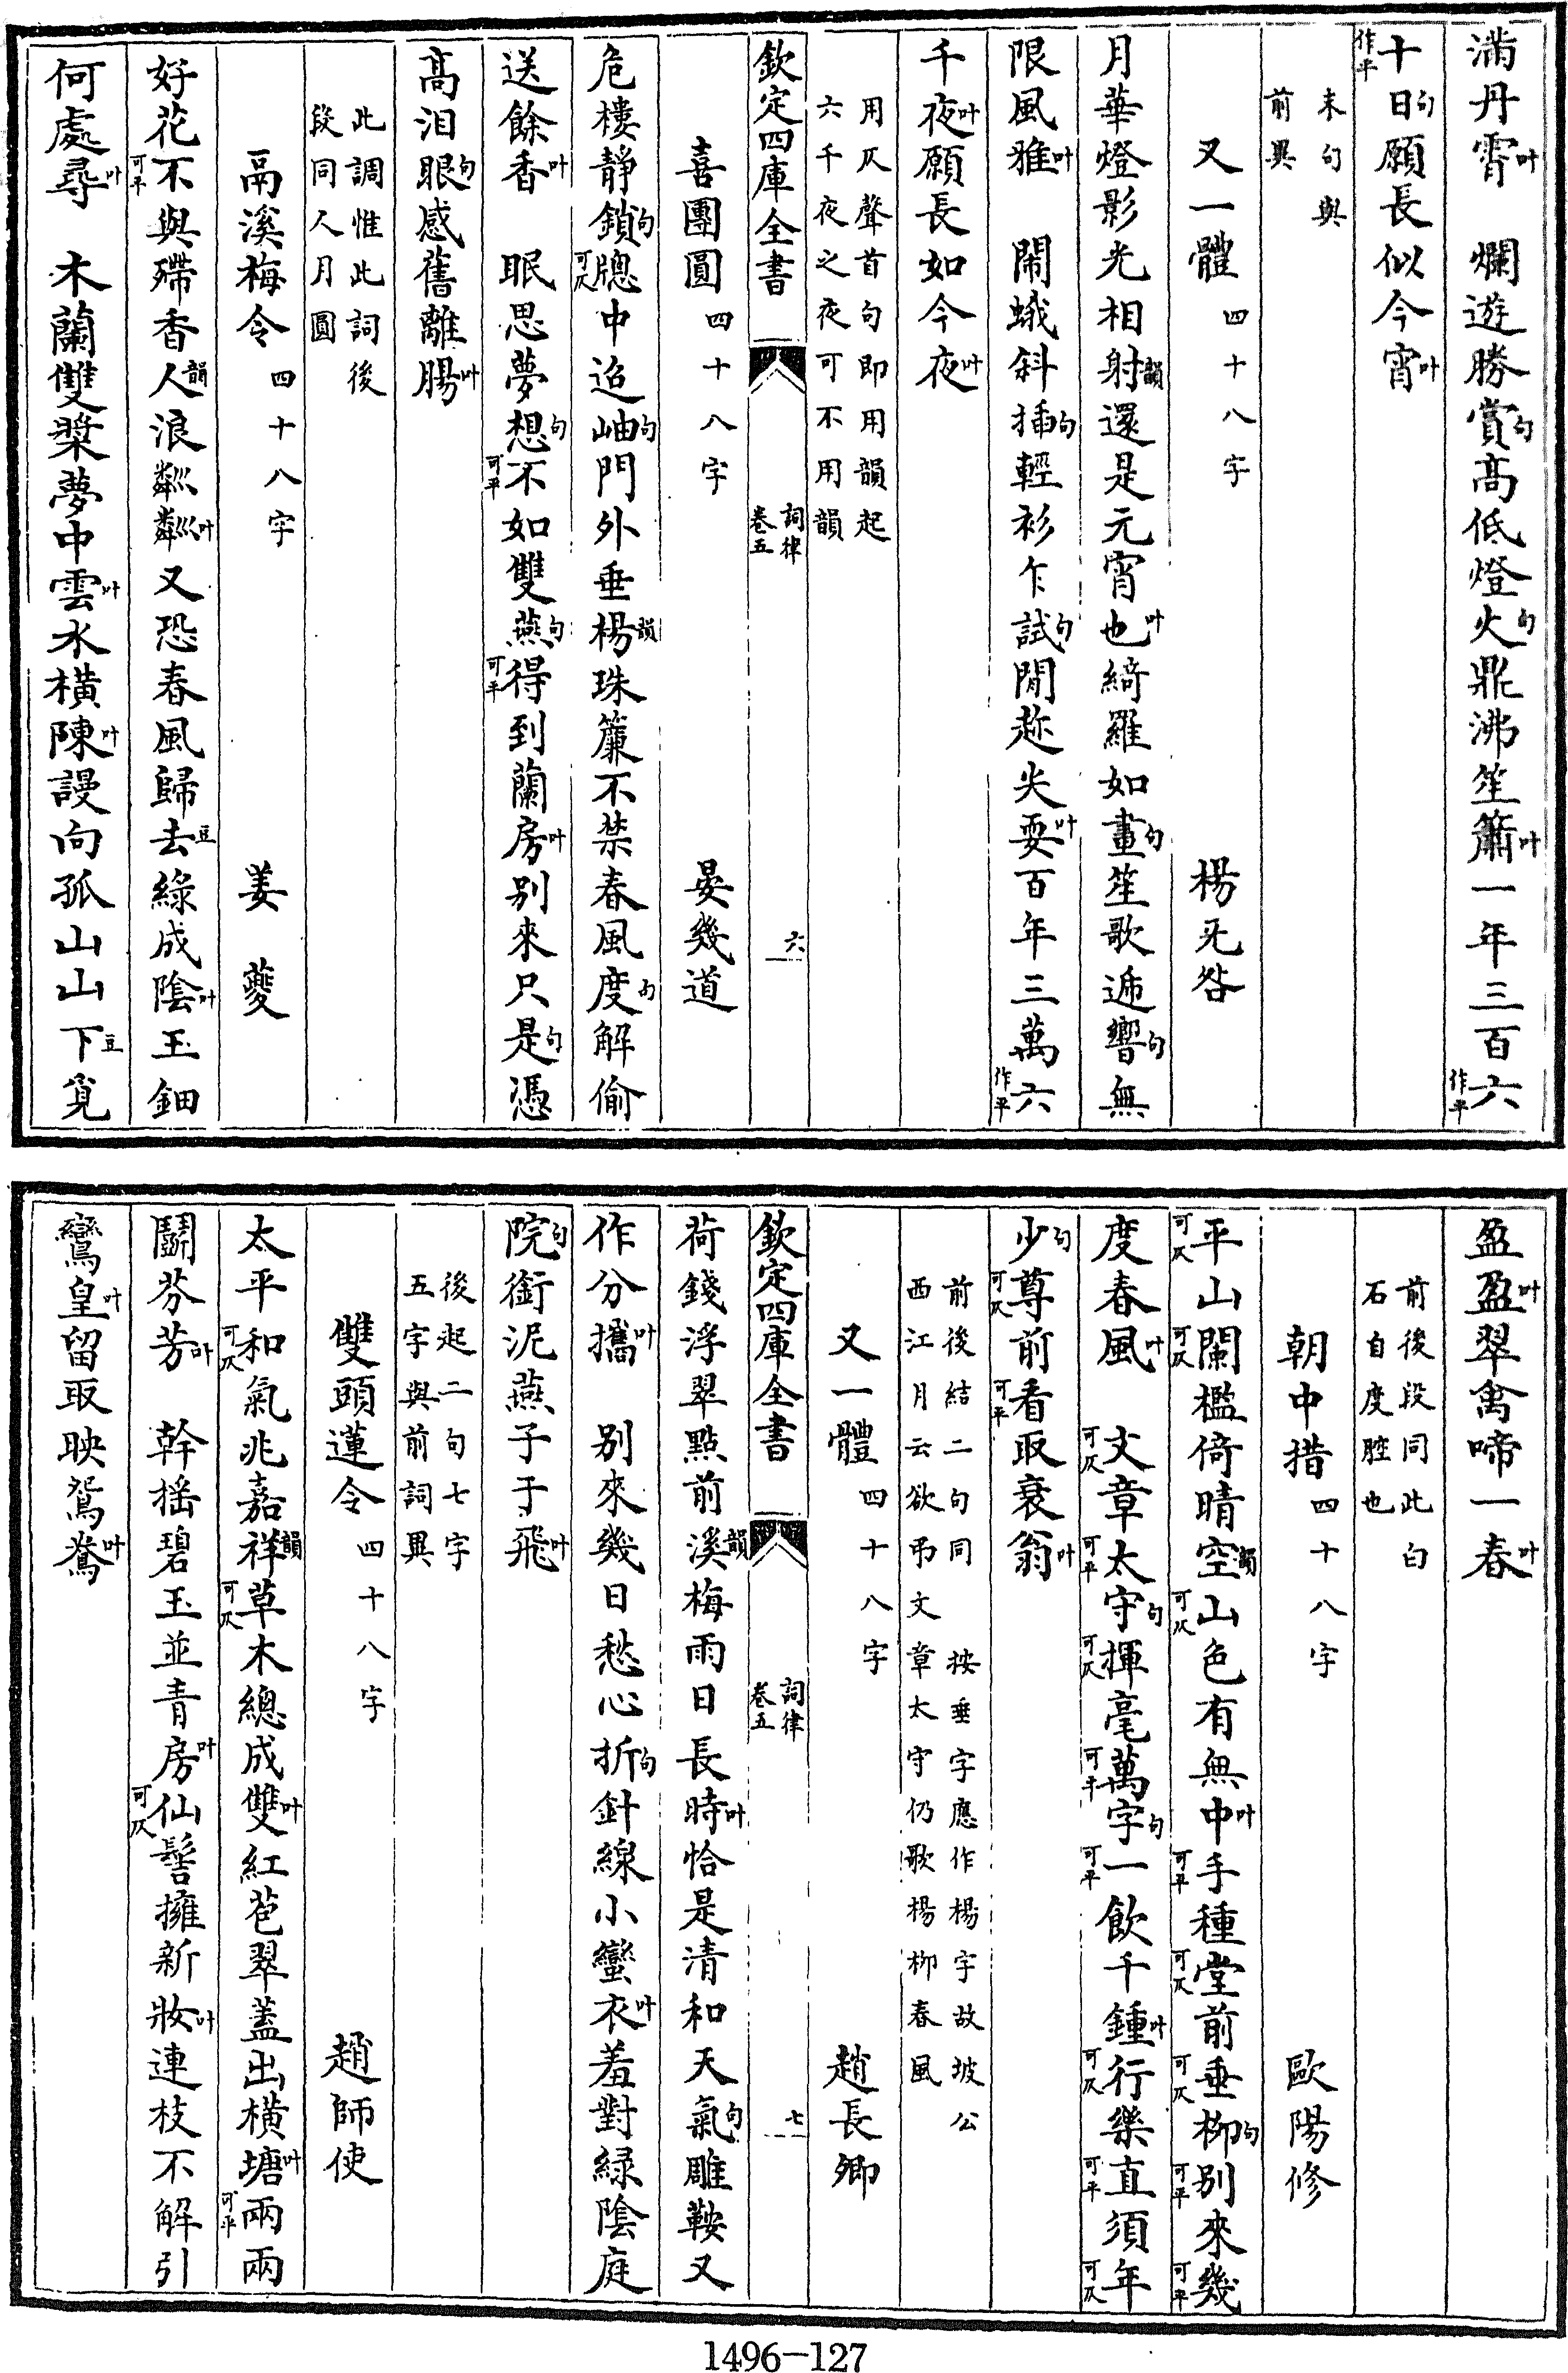 滿丹霄叶　爛遊勝賞句高低燈火句鼎沸笙簫叶一年三百六作平
十作平日句願長似今宵叶
末句與
前異
又一體四十八字　楊无咎
月華燈影光相射韻還是元宵也叶綺羅如畫句笙歌遞響句無
限風雅叶　鬧蛾斜插句輕衫乍試句閒趂尖耍叶百年三萬六作平
千夜叶願長如今夜叶
用仄聲首句即用韻起
六千夜之夜可不用韻
欽定四庫全書　詞律卷五　六
喜團圓四十八字　晏幾道
危樓靜鎖句牕可仄中迢岫句門外垂楊韻珠簾不禁春風度句解偷
送餘香叶　眠思夢想句不可平如雙燕句得可平到蘭房叶别來只是句憑
高淚眼句感舊離腸叶
此調惟此詞後
段同人月圓
鬲溪梅令四十八字　姜夔
好花不可平與殢香人韻浪粼粼叶又恐春風歸去豆綠成陰叶玉鈿
何處尋叶　木蘭雙槳夢中雲叶水橫陳叶謾向孤山山下豆覓
盈盈叶翠禽啼一春叶
前後段同此白
石自度腔也
朝中措四十八字　歐陽修
平可仄山闌可仄檻倚晴空韻山可仄色有無中叶手可平種堂可仄前垂可仄柳句别可平來幾可平
度春風叶　文可仄章太可平守句揮可仄毫萬可平字句一可平飲千鍾叶行可仄樂直可平須年可仄
少句尊可仄前看可平取衰翁叶
前後結二句同　按垂字應作楊字故坡公
西江月云欲弔文章太守仍歌楊柳春風
又一體四十八字　趙長卿
荷錢浮翠點前溪韻梅雨日長時叶恰是清和天氣句雕鞍又
作分攜叶　别來幾日愁心折句針線小蠻衣叶羞對綠陰庭
院句銜泥燕子于飛叶
後起二句七字
五字與前詞異
欽定四庫全書　詞律卷五　七
雙頭蓮令四十八字　趙師使
太平和可仄氣兆嘉祥韻草可仄木總成雙叶紅苞翠蓋出橫塘叶兩可平兩
鬭芬芳叶　幹搖碧玉並青房叶仙可仄髻擁新妝叶連枝不解引
鸞皇叶留取映鴛鴦叶
1496-127